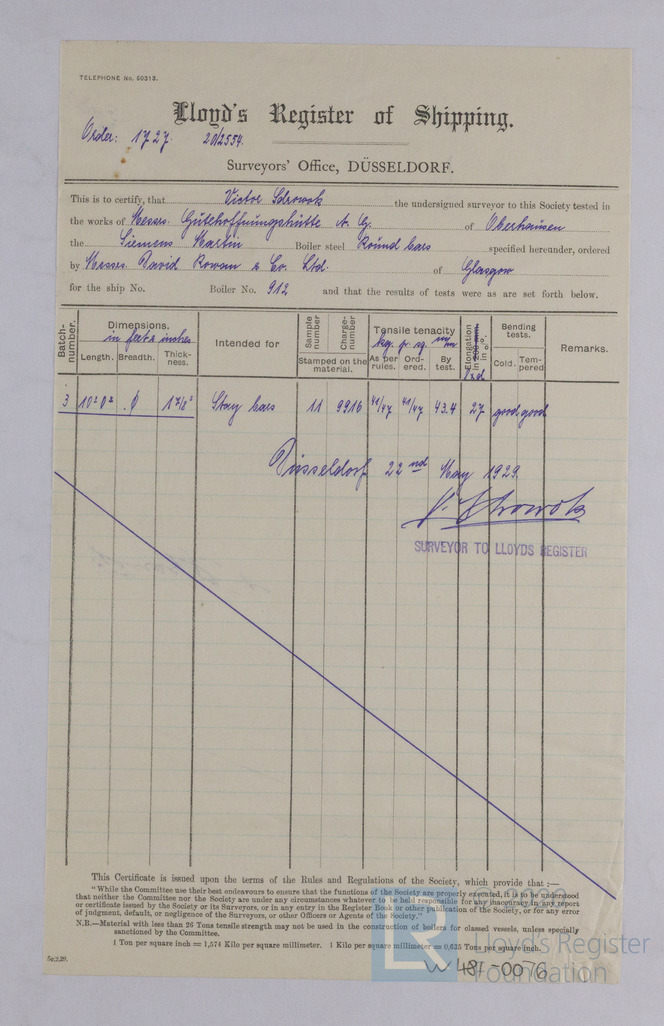 TELEPHONE No. 60313.
Lloyd's Register of Shipping.
Order: 1727. 20/2554.
Surveyors' Office, DÜSSELDORF.
This is to certify, that Victor Sdrowok the undersigned surveyor to this Society tested in
the works of Messrs. Gutehoffnungshütte A.G. of Oberhausen
the Siemens Martin Boiler steel Round bars specified hereunder, ordered
by Messrs. David Rowan & Co. Ltd. of Glasgow
for the ship No. Boiler No. 912 and that the results of tests were as are set forth below.
Batch-number.
Dimensions.
in feet & inches
Length. Breadth. Thick-ness.
Intended for
Sample number
Charge-number
Stamped on the material.
Tensile tenacity
kg. p. sq. mm
As per rules. Ord-ered. By test.
Elongation in 200 mm in %.
Bending tests.
Cold. Tem-pered
Remarks.
3 10' 0" ϕ 1 7/8" Stay bars 11 9916 41/47 41/47 43.4 27 good good
Düsseldorf 22nd May 1929.
V. Sdrowok
SURVEYOR TO LLOYDS REGISTER
This Certificate is issued upon the terms of the Rules and Regulations of the Society, which provide that :—
"While the Committee use their best endeavours to ensure that the functions of the Society are properly executed, it is to be understood
that neither the Committee nor the Society are under any circumstances whatever to be held responsible for any inaccuracy in any report
or certificate issued by the Society or its Surveyors, or in any entry in the Register Book or other publication of the Society, or for any error
of judgment, default, or negligence of the Surveyors, or other Officers or Agents of the Society."
N.B.—Material with less than 26 Tons tensile strength may not be used in the construction of boilers for classed vessels, unless specially
sanctioned by the Committee.
1 Ton per square inch = 1,574 Kilo per square millimeter. 1 Kilo per square millimeter = 0,635 Tons per square inch.
5c,2,29.
W481-0076
LR
Lloyd's Register
Foundation